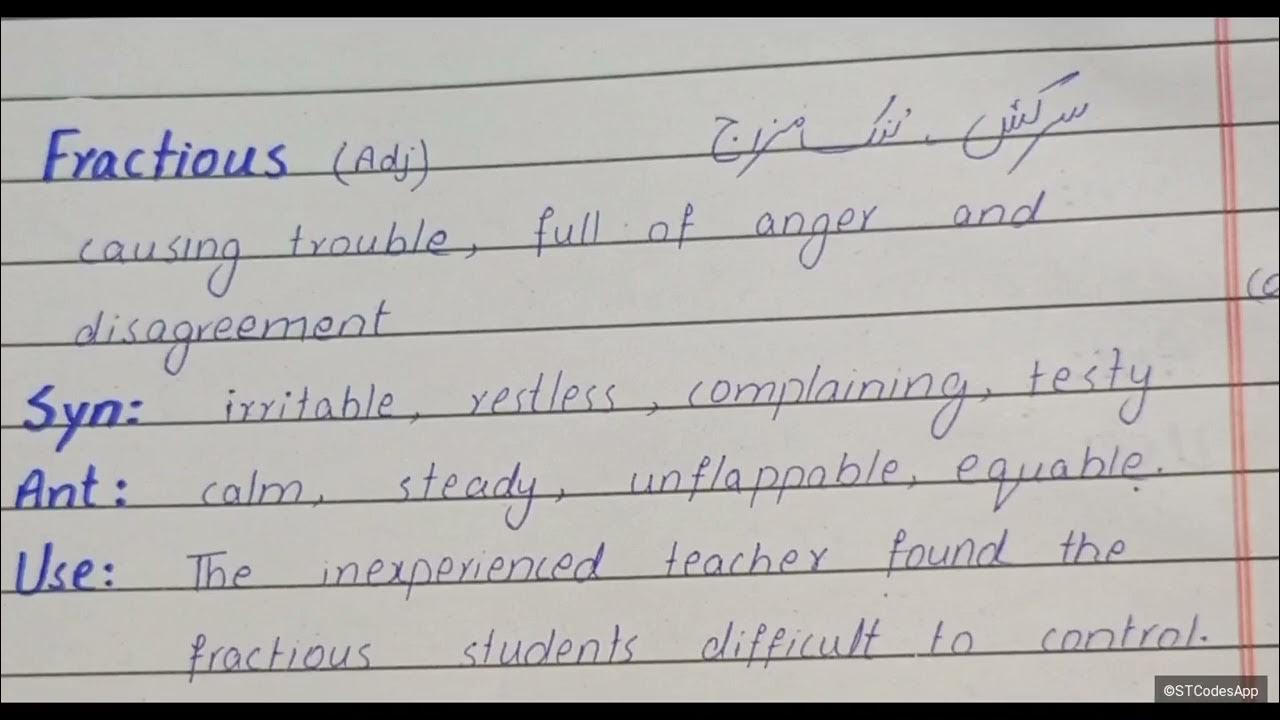 Fractious (Adj) سرکش ۔ تنک مزاج
causing trouble, full of anger and
disagreement
Syn: irritable, restless, complaining, testy
Ant: calm, steady, unflappable, equable.
Use: The inexperienced teacher found the
fractious students difficult to control.
©STCodesApp